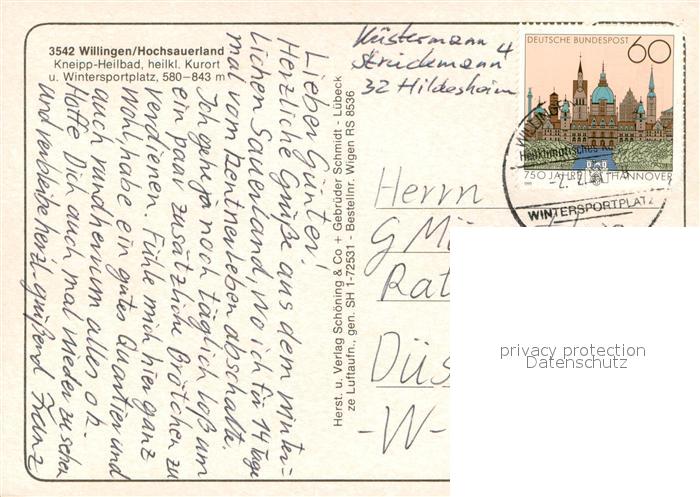 3542 Willingen/Hochsauerland
Kneipp-Heilbad, heilkl. Kurort
u. Wintersportplatz, 580–843 m
Lieber Günter!
Herzliche Grüße aus dem winter=
lichen Sauerland, wo ich für 14 Tage
mal vom Rentnerleben abschalte.
Ich gehe ja noch täglich los um
ein paar zusätzliche Brötchen zu
verdienen. Fühle mich hier ganz
wohl, habe ein gutes Quartier und
auch rundherum alles o.k.
Hoffe Dich auch mal wieder zu sehen
und verbleibe herzl. grüßend Franz
Herst. u. Verlag Schöning & Co + Gebrüder Schmidt - Lübeck
ze Luftaufn., gen. SH 1-72531 - Bestellnr. Wigen RS 8536
Küstermann
Struckmann 4
32 Hildesheim
DEUTSCHE BUNDESPOST 60
750 JAHRE HANNOVER
Heilklimatischer
WINTERSPORTPLATZ
Herrn
G Mü
Rat
Düs
-W-
privacy protection
Datenschutz